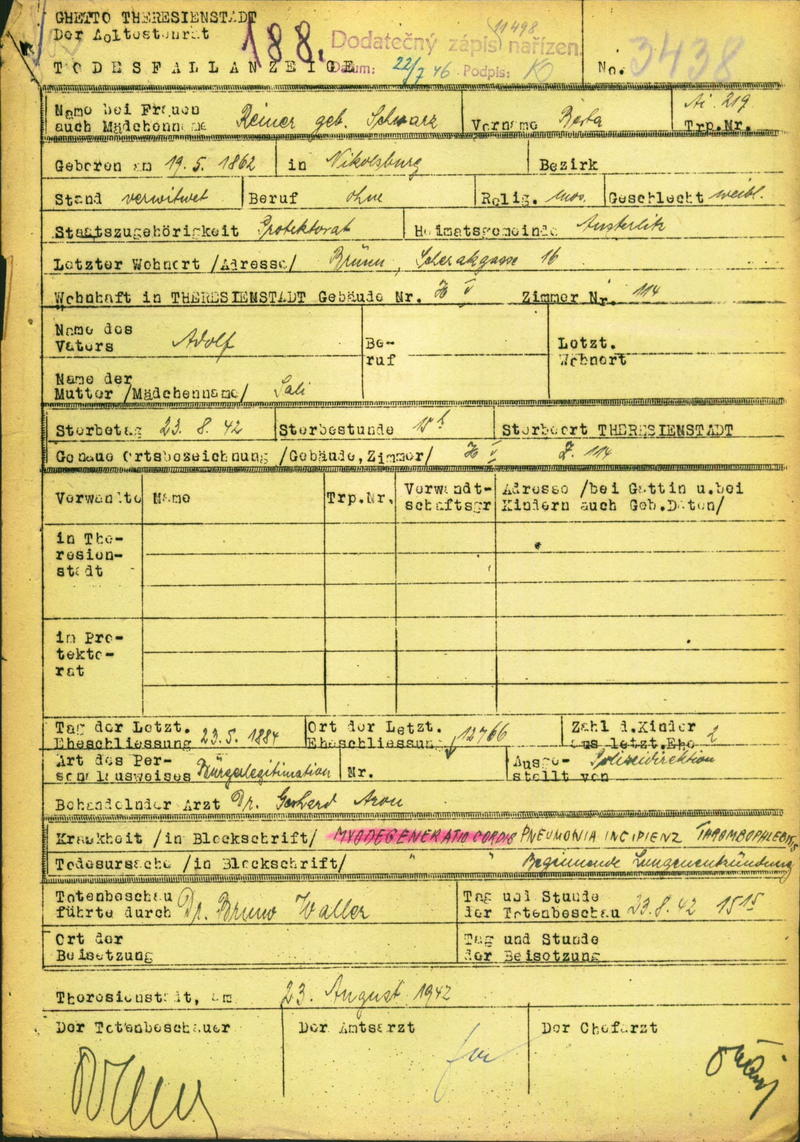 GHETTO THERESIENSTADT
Der Aeltestenrat
188.
11498
Dodatečný zápis nařízen.
Datum: 22/7 46 Podpis:
TODESFALLANZEIGE
No. 3438
Name bei Frauen auch Mädchenname Reiner geb. Schwarz Vorname Berta Ai. 219 Trp.Nr.
Geboren am 19.5.1862 in Nikolsburg Bezirk
Stand verwitwet Beruf ohne Relig. mos. Geschlecht weibl.
Staatszugehörigkeit Protektorat Heimatsgemeinde Austerlitz
Letzter Wohnort /Adresse/ Brünn, 16
Wohnhaft in THERESIENSTADT Gebäude Nr. Zimmer Nr. 114
Name des Vaters Adolf Be-ruf Letzt. Wohnort
Name der Mutter /Mädchenname/ Sali
Sterbetag 23.8.42 Sterbestunde Sterbeort THERESIENSTADT
Genaue Ortsbezeichnung /Gebäude, Zimmer/ Z. 114
Verwandte Name Trp.Nr. Verwandt-schaftsgr Adresse /bei Gattin u.bei Kindern auch Geb.Daten/
in The-resien-stadt
in Pro-tekto-rat
Tag der Letzt. Eheschliessung 23.5.1884 Ort der Letzt. Eheschliessung 12766 Zahl d.Kinder aus letzt.Ehe 2
Art des Per-sonalausweises Bürgerlegitimation Nr. Ausge-stellt von Polizeidirektion
Behandelnder Arzt Dr. Gerhard Aron
Krankheit /in Blockschrift/ MYODEGENERATIO CORDIS PNEUMONIA INCIPIENZ THROMBOPHLEBITIS
Todesursache /in Blockschrift/ " " Beginnende Lungenentzündung
Totenbeschau führte durch Dr. Bruno Waller Tag und Stunde der Totenbeschau 23.8.42 15 15
Ort der Beisetzung Tag und Stunde der Beisetzung
Theresienstadt, am 23. August 1942
Der Totenbeschauer Der Amtsarzt Der Chefarzt